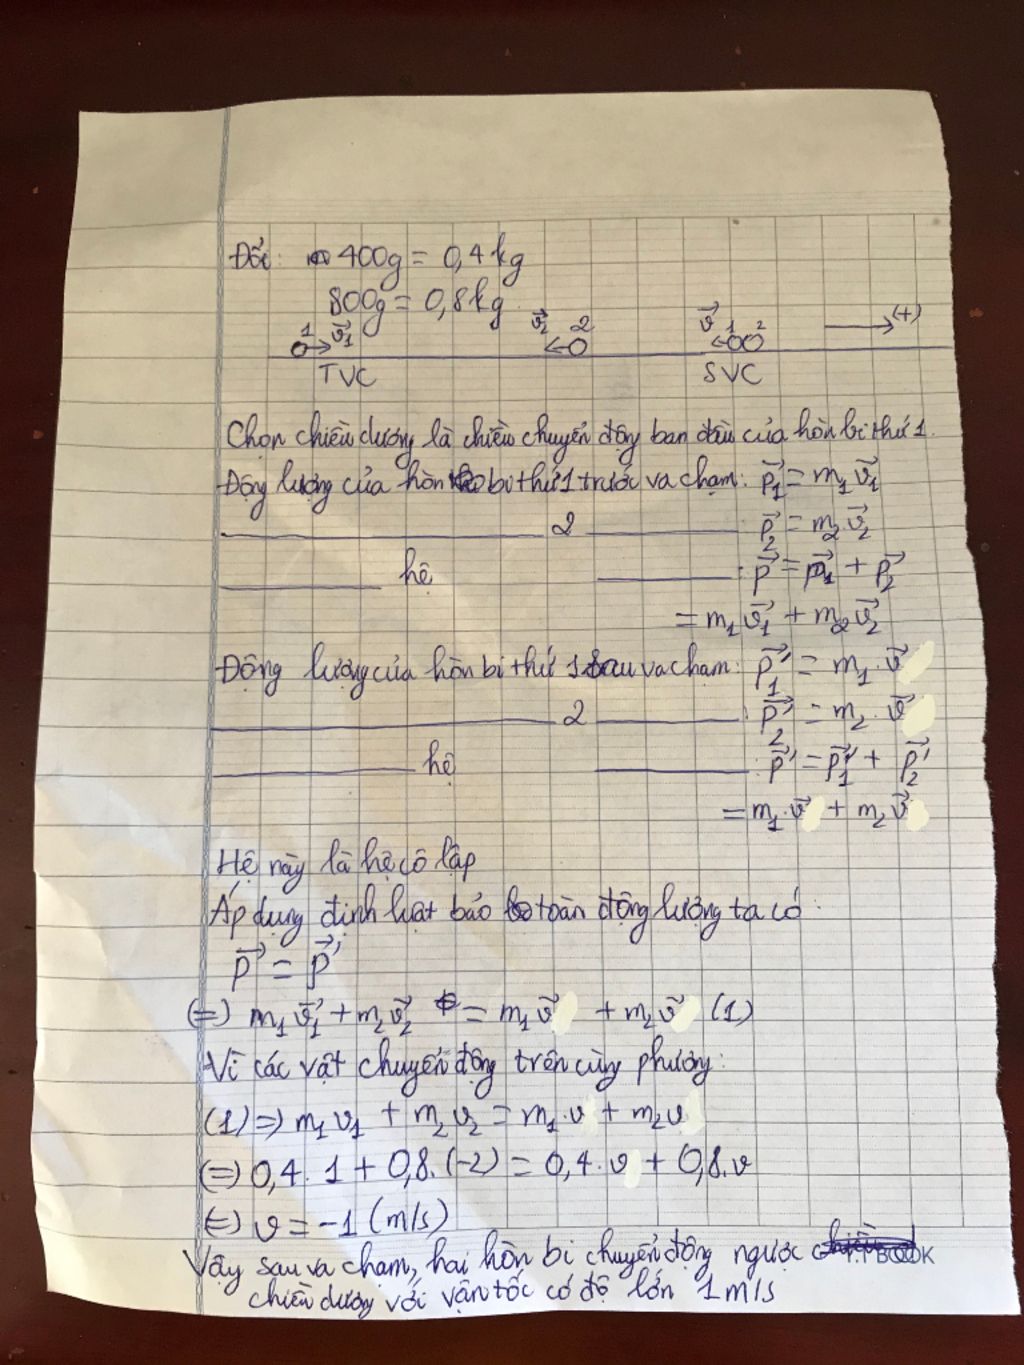 Đổi: 400g = 0,4 kg
800g = 0,8 kg
1 v⃗₁ v⃗₂ 2 v⃗ 1 2 (+)
TVC SVC
Chọn chiều dương là chiều chuyển động ban đầu của hòn bi thứ 1.
Động lượng của hòn bi thứ 1 trước va chạm: p⃗₁ = m₁v⃗₁
2 : p⃗₂ = m₂v⃗₂
hệ : p⃗ = p⃗₁ + p⃗₂
= m₁v⃗₁ + m₂v⃗₂
Động lượng của hòn bi thứ 1 sau va chạm: p⃗₁' = m₁.v⃗
2 : p⃗₂' = m₂.v⃗
hệ : p⃗' = p⃗₁' + p⃗₂'
= m₁.v⃗ + m₂v⃗
Hệ này là hệ cô lập
Áp dụng định luật bảo toàn động lượng ta có:
p⃗ = p⃗'
(=) m₁v⃗₁ + m₂v⃗₂ = m₁v⃗ + m₂v⃗ (1)
Vì các vật chuyển động trên cùng phương:
(1) => m₁v₁ + m₂v₂ = m₁.v + m₂v
(=) 0,4.1 + 0,8.(-2) = 0,4.v + 0,8.v
(=) v = -1 (m/s)
Vậy sau va chạm, hai hòn bi chuyển động ngược
chiều dương với vận tốc có độ lớn 1m/s